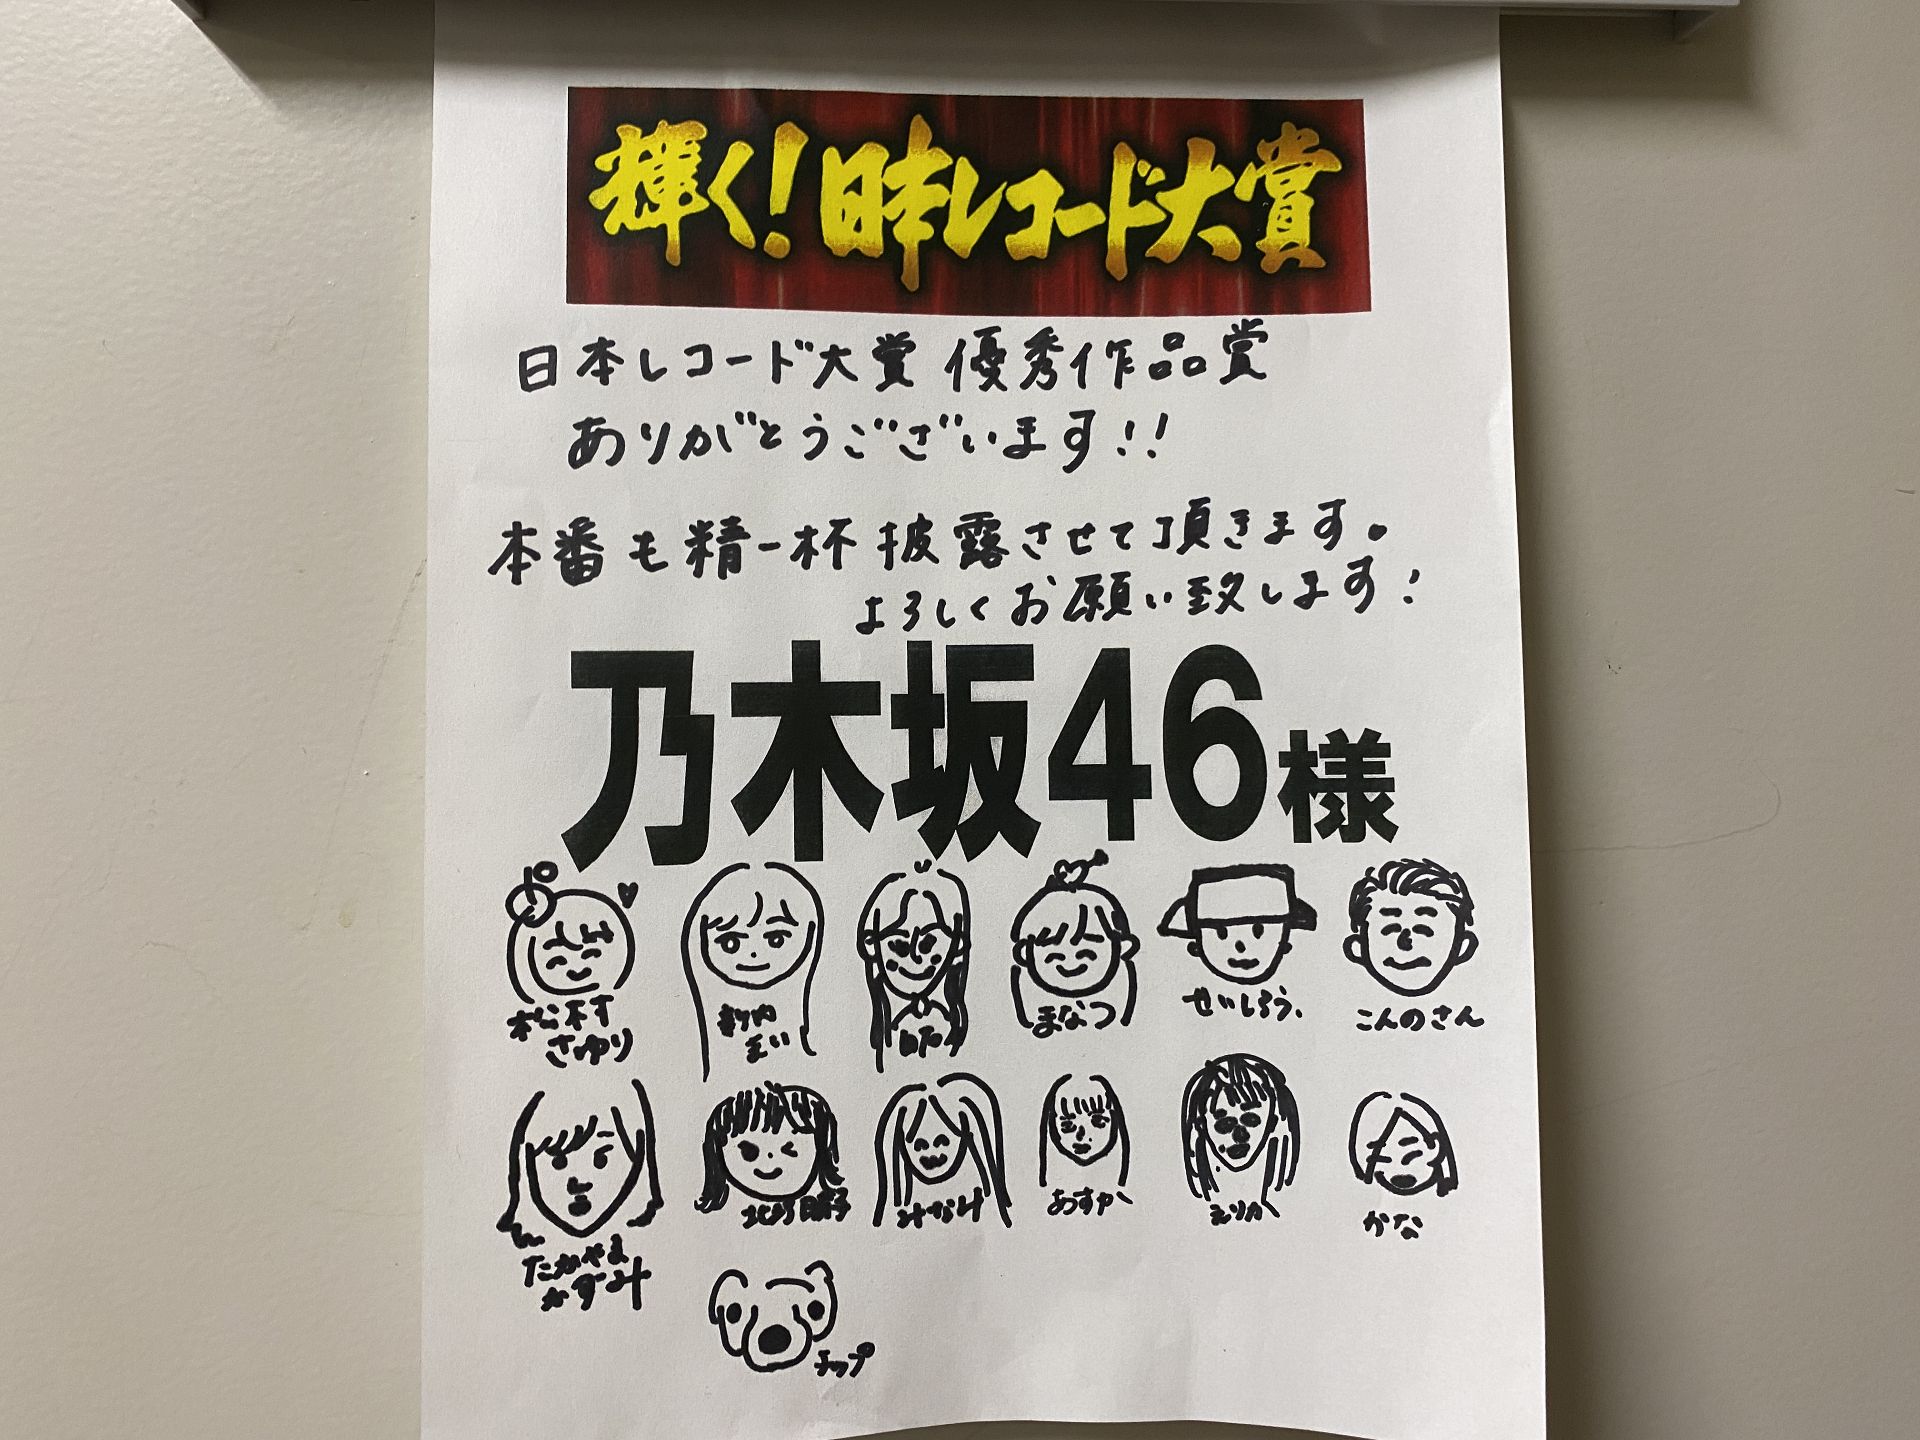 輝く!日本レコード大賞
日本レコード大賞 優秀作品賞
ありがとうございます!!
本番も精一杯 披露させて頂きます。
よろしくお願い致します!
乃木坂46様
松村
さゆり
新内
まい
まなつ
せいしろう、
こんのさん
たかやま
かずみ
北野日奈子
みなみ
あすか
えりか
かな
チップ